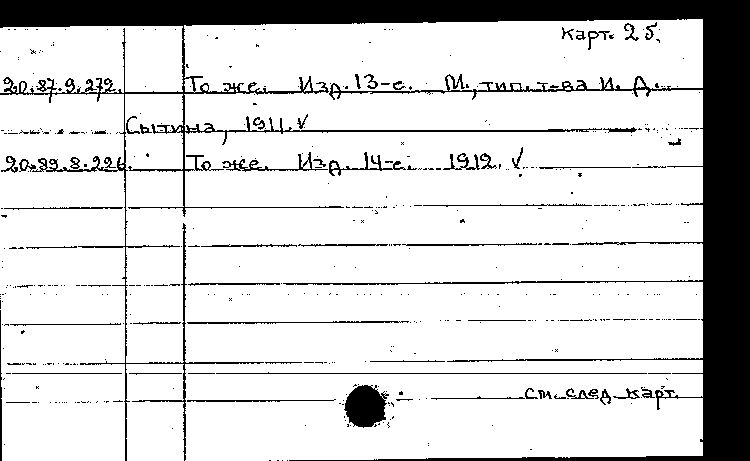 Карт. 25.
20.87.9.272. То же. Изд. 13-е. М., тип. т-ва И. Д.
Сытина, 1911. √
20.89.8.226. То же. Изд. 14-е. 1912. √
См. след. карт.